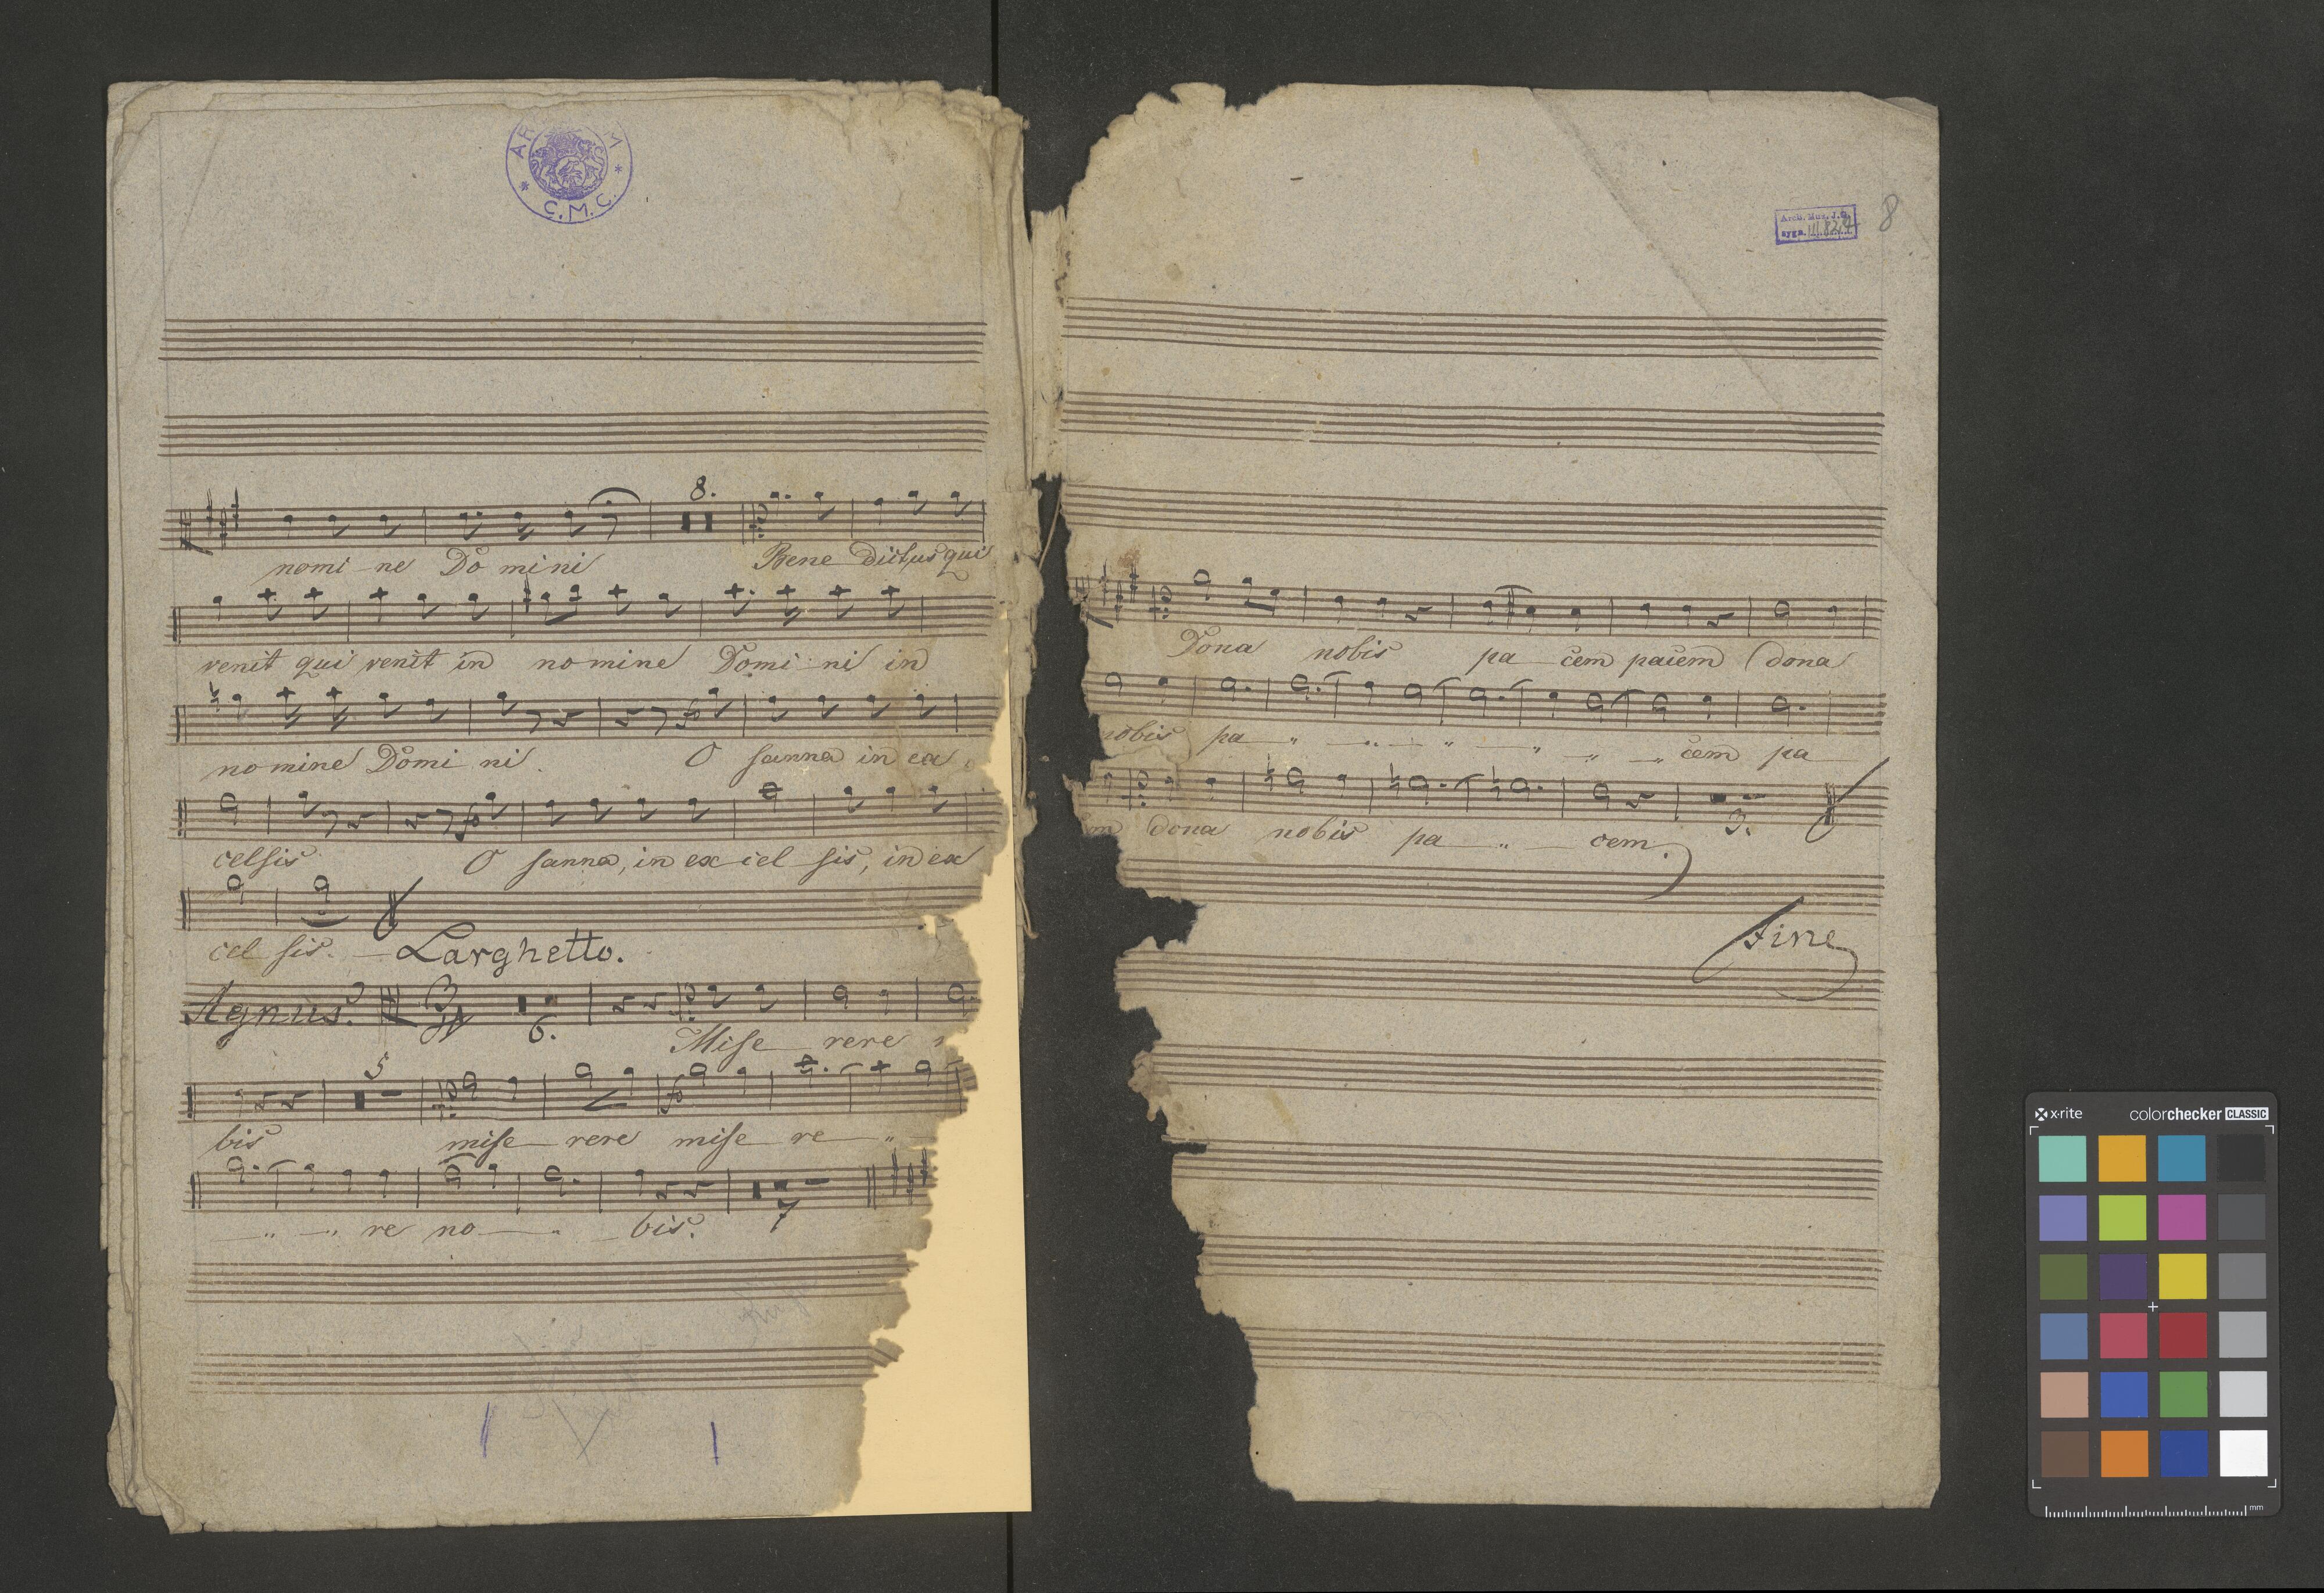 C. M. C.
8.
nomi-ne Domini Bene dictus qui
venit qui venit in nomine Domi ni in
nomine Domi ni. O sanna in ex
celsis O sanna, in ex cel sis, in ex
cel sis. — Larghetto.
Agnus.
6.
Mise rere
5
bis mise — rere mise re — „ —
— „ — „ re no — „ — bis.
7
Arch. Muz. J.G.
sygn. III.82/
8
Dona nobis pa cem pacem dona
nobis pa „ — „ — „ — „ — „ — „ cem pa —
dona nobis pa — „ — cem.
3.
Fine
x·rite colorchecker CLASSIC
mm